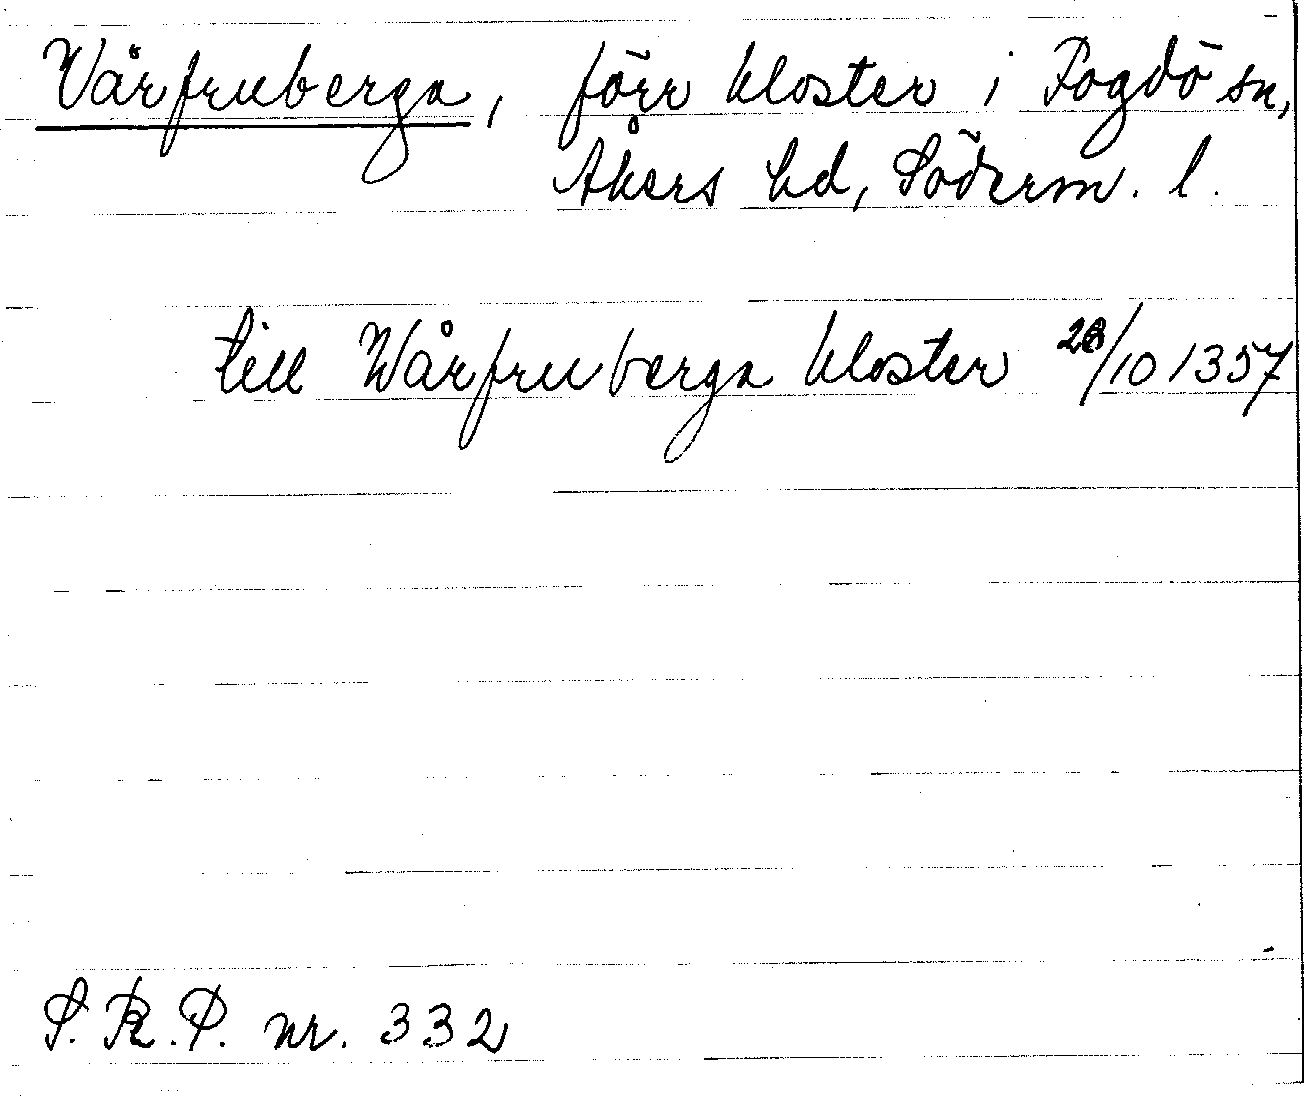 Vårfruberga, förr kloster i Fogdö sn,
Åkers hd, Söderm. l.
till Wårfruberga kloster 28/10 1357
S. R. P. nr. 332